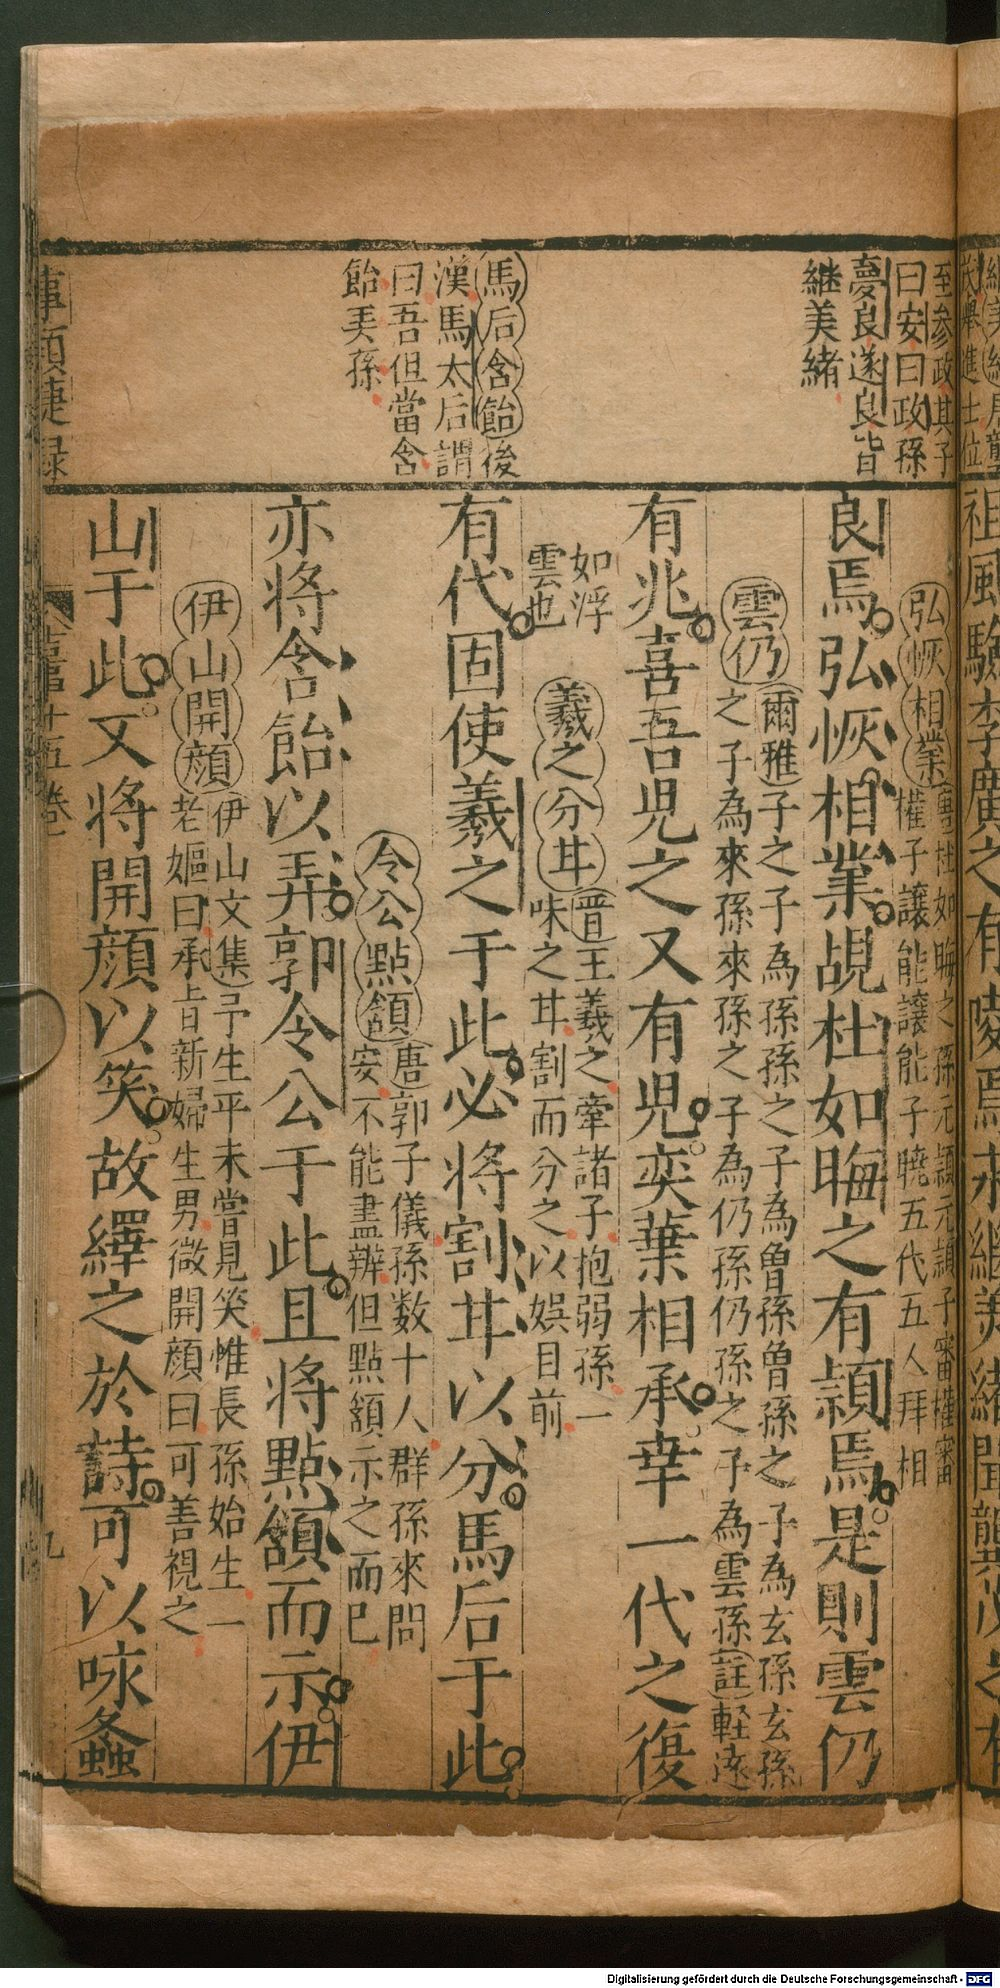 至参政其子
曰安曰政孫
夢良遂良皆
継美緒
馬后含飴後
漢馬太后謂
曰吾但當含
飴美孫
弘恢相業唐杜如晦之孫元頴元頴子審權審
權子讓能讓能子曉五代五人拜相
良焉弘恢相業覩杜如晦之有頴焉是則雲仍
雲仍爾雅子之子為孫孫之子為曾孫曾孫之子為玄孫玄孫
之子為來孫來孫之子為仍孫仍孫之子為雲孫註軽遠
有兆喜吾児之又有児奕葉相承幸一代之復
如浮
雲也
羲之分甘晋王羲之牽諸子抱弱孫一
味之甘割而分之以娯目前
有代固使羲之于此必将割甘以分馬后于此
令公點頷唐郭子儀孫数十人群孫來問
安不能盡辨但點頷示之而已
亦将含飴以弄郭令公于此且将點頷而示伊
伊山開顔伊山文集予生平未嘗見笑惟長孫始生一
老嫗曰承旨新婦生男微開顔曰可善視之
山于此又将開顔以笑故繹之於詩可以咏螽
十五巻
九
Digitalisierung gefördert durch die Deutsche Forschungsgemeinschaft - DFG